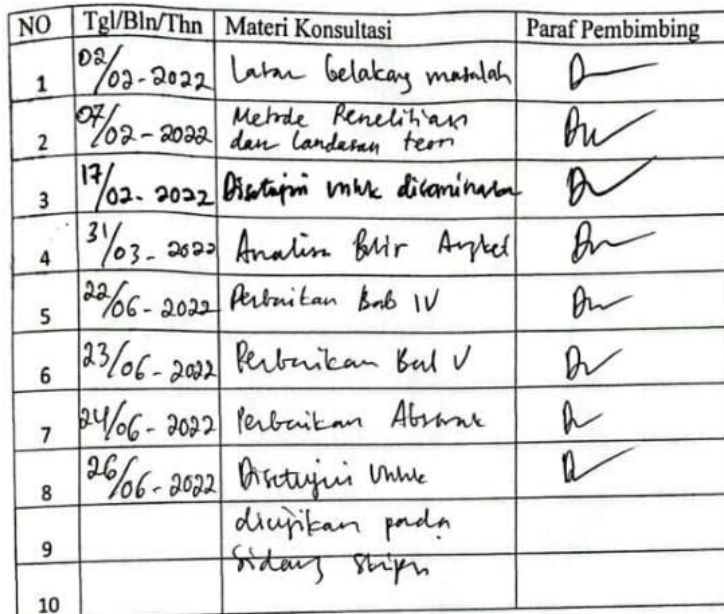 NO Tgl/Bln/Thn Materi Konsultasi Paraf Pembimbing
1 02/02-2022 Latar belakang masalah
2 07/02-2022 Metode Penelitian
dan landasan teori
3 17/02-2022 Disetujui untuk diseminarkan
4 31/03-2022 Analisa Butir Angket
5 22/06-2022 Perbaikan Bab IV
6 23/06-2022 Perbaikan Bab V
7 24/06-2022 Perbaikan Abstrak
8 26/06-2022 Disetujui untuk
9 diujikan pada
sidang skripsi
10